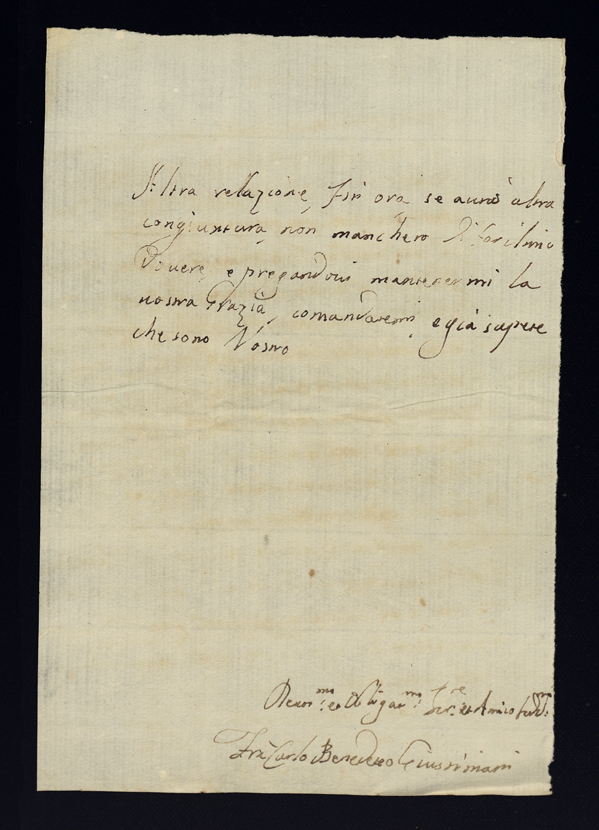 Altra rellazione, fin ora, se aurò altra
congiuntura, non mancherò di far il mio
Douere, e pregandoui mantenermi la
uostra Grazia, comandaremi, e già sapete
che sono Vostro
Deuo.mo et Oblig.mo Ser.re et Amico
Fra Carlo Benedetto Giustiniani